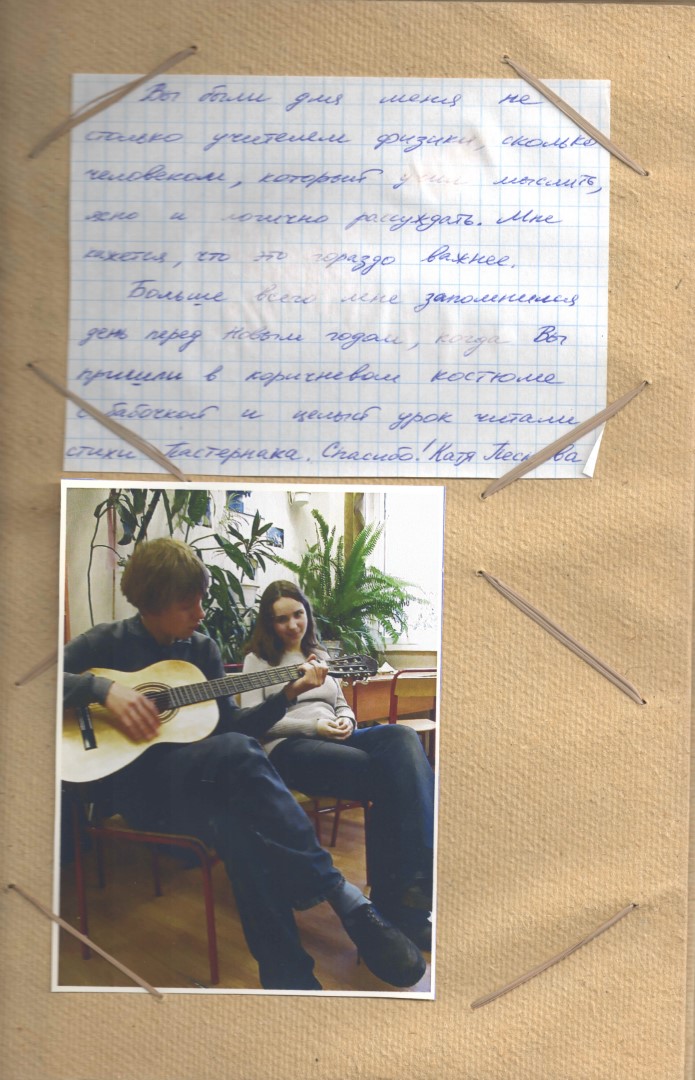 Вы были для меня не
столько учителем физики, сколько
человеком, который учил мыслить,
ясно и логично рассуждать. Мне
кажется, что это гораздо важнее.
Больше всего мне запомнился
день перед Новым годом, когда Вы
пришли в коричневом костюме
с бабочкой и целый урок читали
стихи Пастернака. Спасибо! Катя